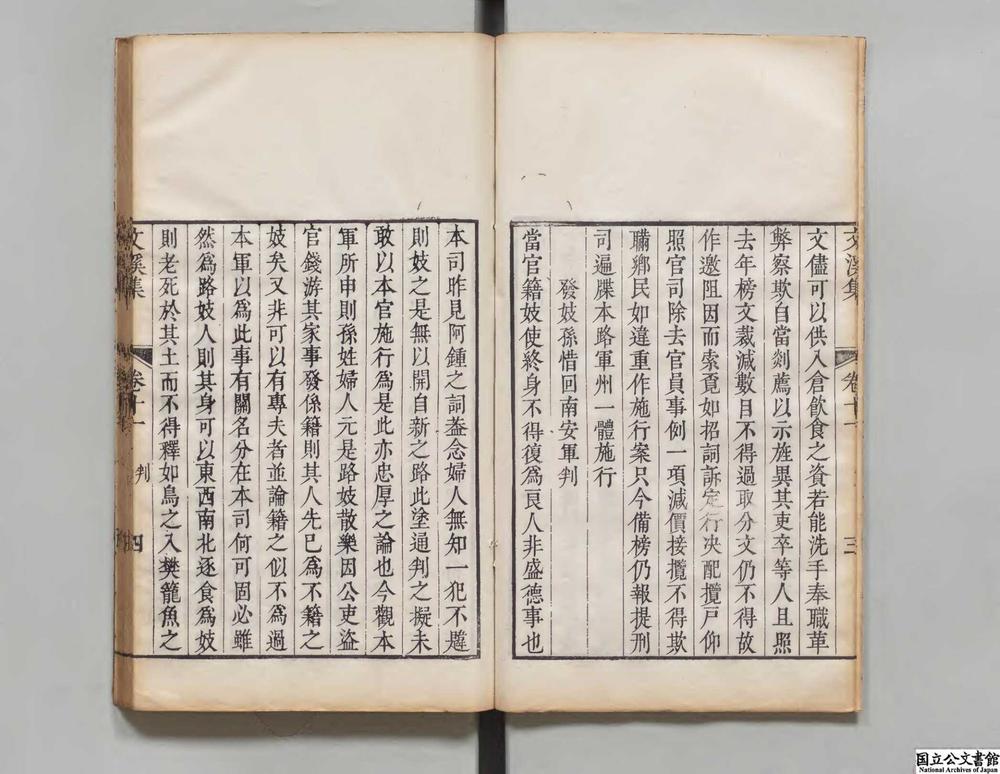 文溪集
卷十一
三
文儘可以供入倉飲食之資若能洗手奉職革
弊察欺自當剡薦以示旌異其吏卒等人且照
去年榜文裁減數目不得過取分文仍不得故
作邀阻因而索覔如招詞訴定行决配攬戸仰
照官司除去官員事例一項減價接攬不得欺
瞞鄉民如違重作施行案只今備榜仍報提刑
司遍牒本路軍州一體施行
發妓孫惜回南安軍判
當官籍妓使終身不得復爲良人非盛德事也
本司昨見阿鍾之詞葢念婦人無知一犯不韙
則妓之是無以開自新之路此塗通判之擬未
敢以本官施行爲是此亦忠厚之論也今觀本
軍所申則孫姓婦人元是路妓散樂因公吏盜
官錢游其家事發係籍則其人先已爲不籍之
妓矣又非可以有專夫者並論籍之似不爲過
本軍以爲此事有關名分在本司何可固必雖
然爲路妓人則其身可以東西南北逐食爲妓
則老死於其土而不得釋如鳥之入樊籠魚之
文溪集
卷十一
判
四
国立公文書館
National Archives of Japan